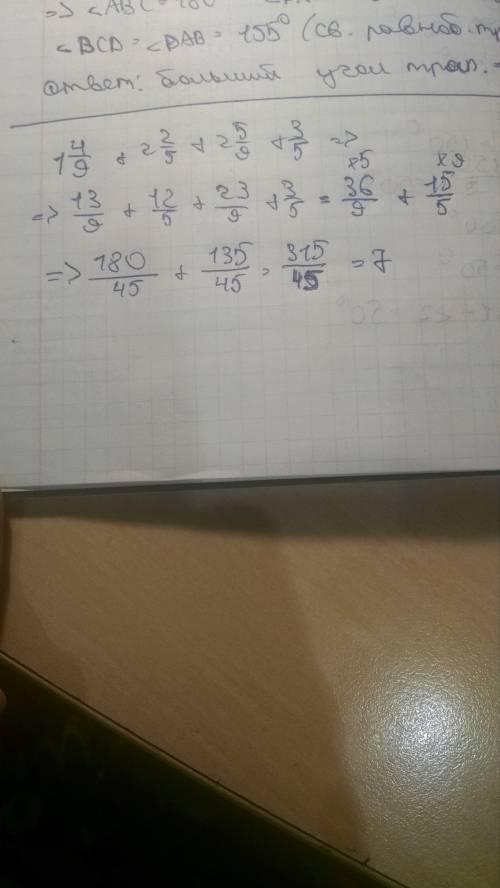 => <ABC = 180
<BCD = <BAB = 155⁰ (св. равноб. тр
ответ: больший угол трап. =
1 4/9 + 2 2/5 + 2 5/9 + 3/5 =>
×5 ×9
=> 13/9 + 12/5 + 23/9 + 3/5 = 36/9 + 15/5
=> 180/45 + 135/45 = 315/45 = 7